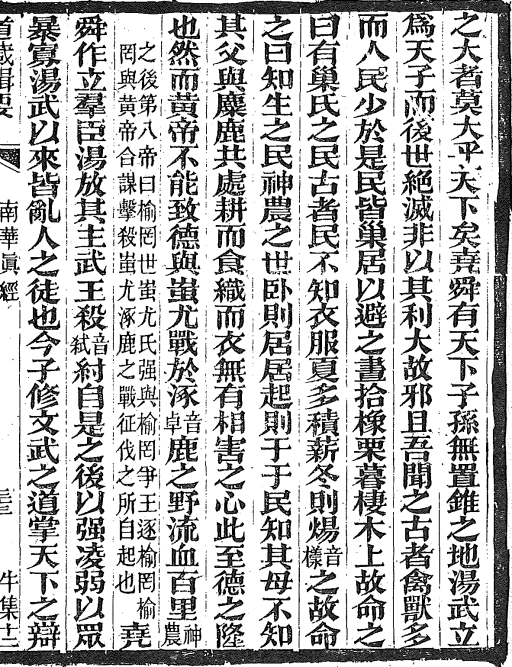 之大者莫大乎天下矣堯舜有天下子孫無置錐之地湯武立
為天子而後世絕滅非以其利大故邪且吾聞之古者禽獸多
而人民少於是民皆巢居以避之晝拾橡栗暮棲木上故命之
曰有巢氏之民古者民不知衣服夏多積薪冬則煬音樣之故命
之曰知生之民神農之世臥則居居起則于于民知其母不知
其父與麋鹿共處耕而食織而衣無有相害之心此至德之隆
也然而黃帝不能致德與蚩尤戰於涿音卓鹿之野流血百里神農
之後第八帝曰榆罔世蚩尤氏强與榆罔爭王逐榆罔榆
罔與黃帝合謀擊殺蚩尤涿鹿之戰征伐之所自起也堯
舜作立羣臣湯放其主武王殺音弒紂自是之後以强凌弱以眾
暴寡湯武以來皆亂人之徒也今子修文武之道掌天下之辯
道藏輯要 南華眞經 牛集十二